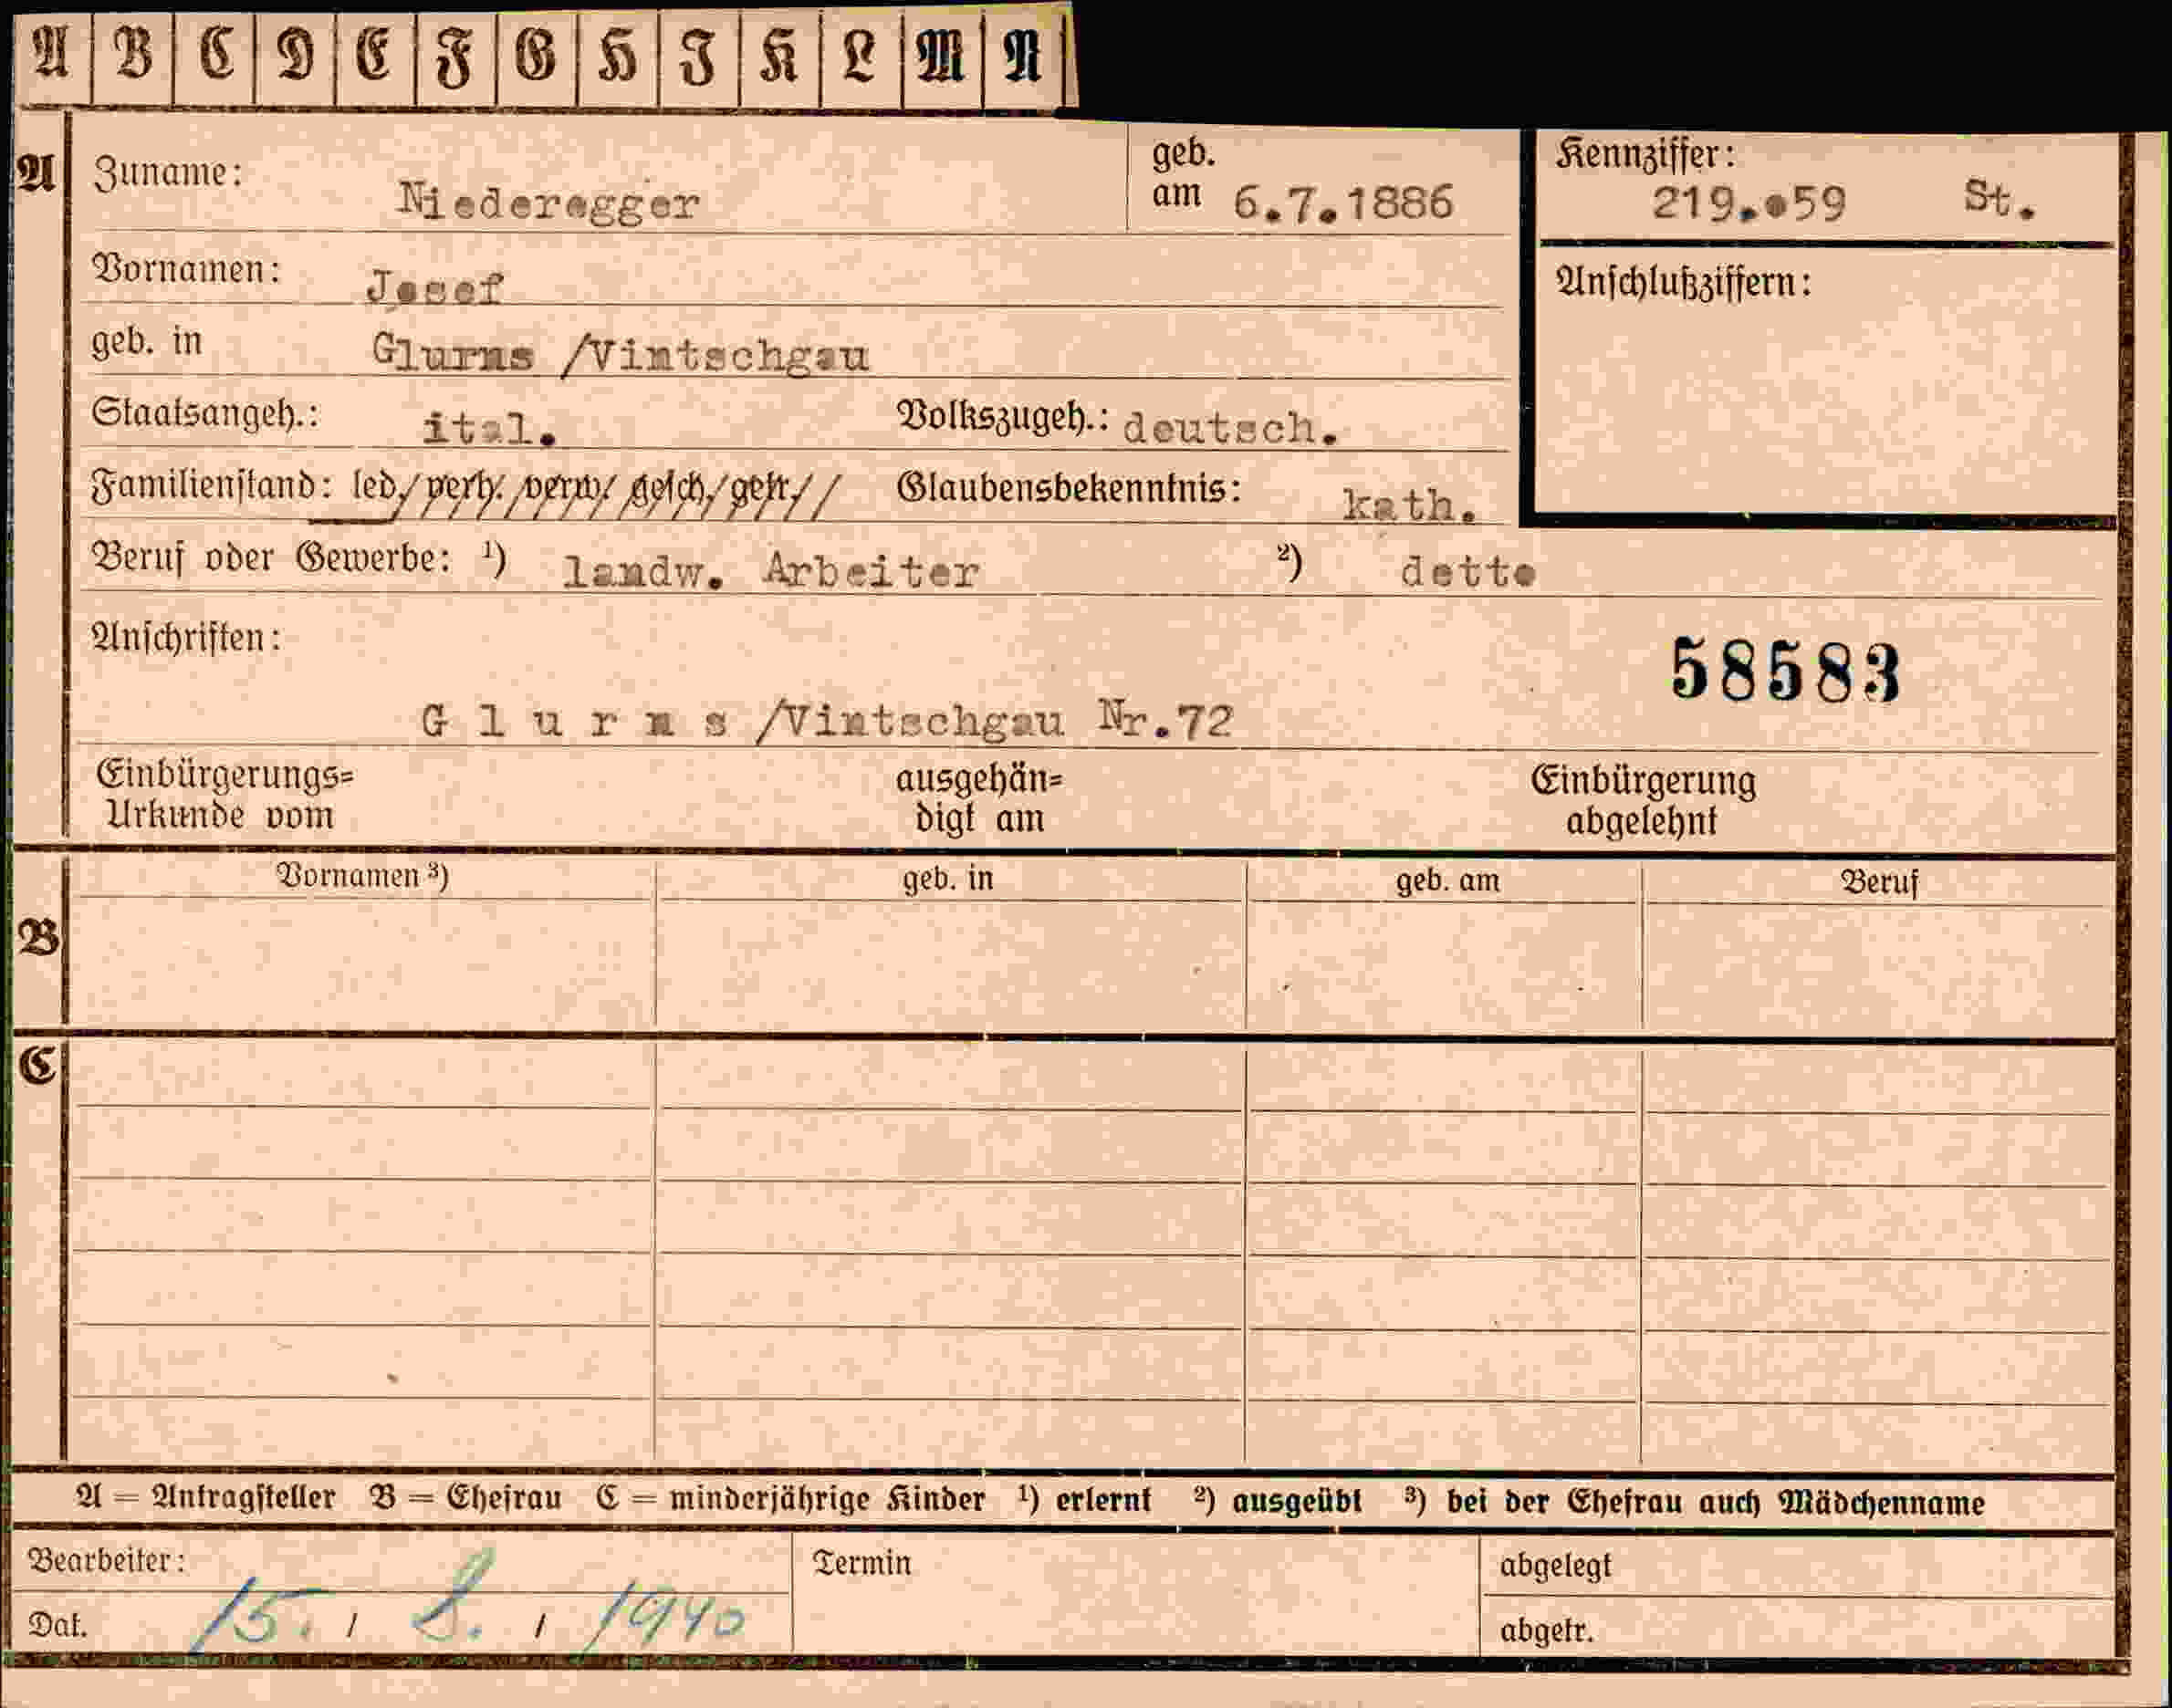 A B C D E F G H I K L M N
A Zuname: Niederegger geb. am 6.7.1886 Kennziffer: 219.059 St.
Vornamen: Josef Anschlußziffern:
geb. in Glurns /Vintschgau
Staatsangeh.: ital. Volkszugeh.: deutsch.
Familienstand: led/verh./verw/gesch/getr// Glaubensbekenntnis: kath.
Beruf oder Gewerbe: ¹) landw. Arbeiter ²) detto
Anschriften: 58583
G l u r n s /Vintschgau Nr.72
Einbürgerungs= ausgehän= Einbürgerung
Urkunde vom digt am abgelehnt
Vornamen ³) geb. in geb. am Beruf
B
C
A = Antragsteller B = Ehefrau C = minderjährige Kinder ¹) erlernt ²) ausgeübt ³) bei der Ehefrau auch Mädchenname
Bearbeiter: Termin abgelegt
Dat. 15. / 2. / 1940 abgetr.